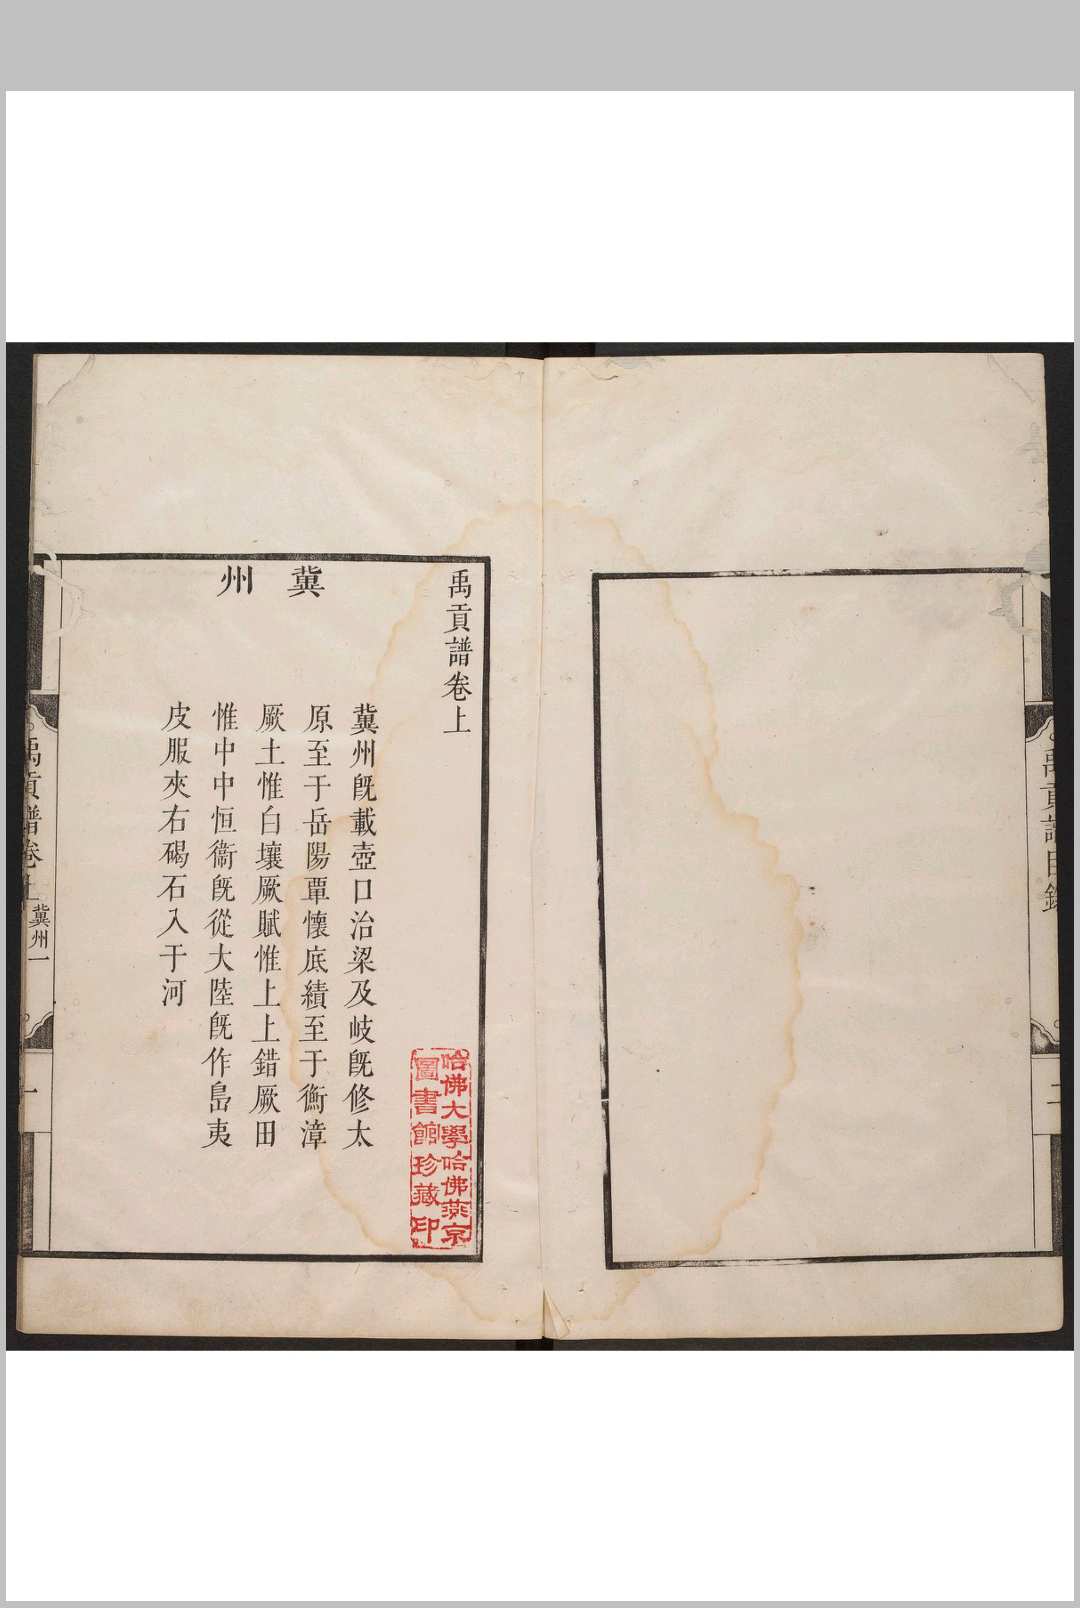 禹貢譜目錄
二
禹貢譜卷上
冀州
冀州旣載壺口治梁及岐旣修太
原至于岳陽覃懷底績至于衡漳
厥土惟白壤厥賦惟上上錯厥田
惟中中恒衞旣從大陸旣作島夷
皮服夾右碣石入于河
哈佛大學哈佛燕京
圖書館珍藏印
禹貢譜卷上
冀州一
一